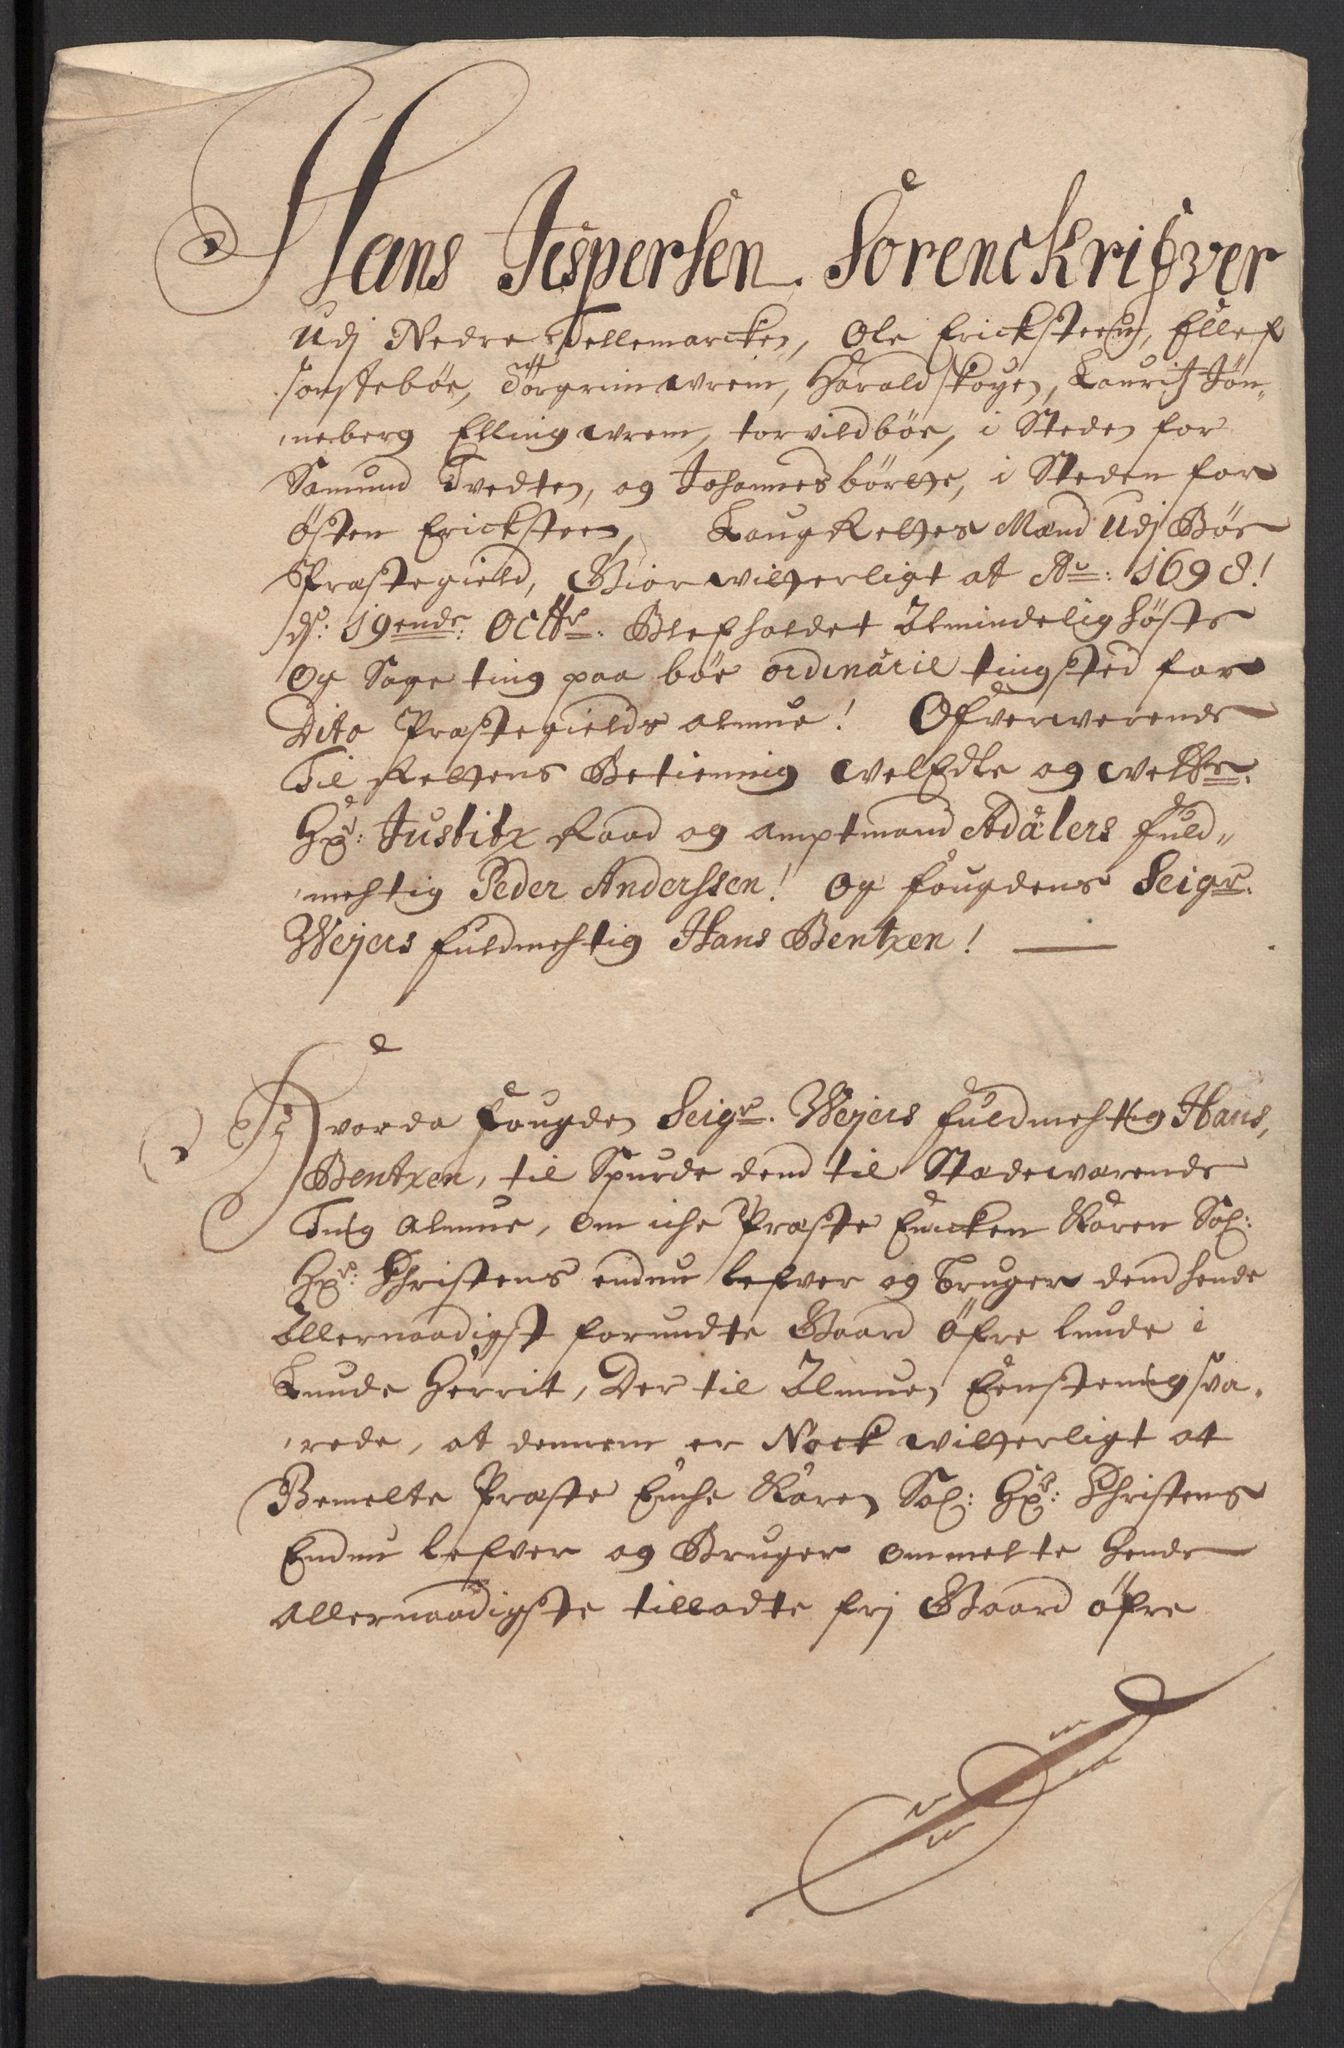 Hans Jespersen Sorenckrifver
Udj Nedre Tellemarcken, Ole Ericksteen, Ellef
Sønstebøe, Torgrim Wrem, Harald Skoye, Lauritz Tøn-
neberg Elling Wrem, torvildbøe, i Steden for
Samund Tvedten, og Johannes børtte, i Steden for
Østen Ericksteen, Laug Rettes Mænd Udj Bøe
Præstegield, Giør witterligt at Ao: 1698!
ds: 19ende: Octbr. Blef holdet Almindelig Høste
og Sage ting paa bøe ordinarie tingsted for
Dito Præstegields almue! Ofverwerende
Til Rettens Betienning WelEdle og Welbr.
Hr: Justitz Raad og Amptmand Adelers Fuld-
mehtig Peder Anderssen! Og fougdens Seigr.
Weyers fuldmehtig Hans Bentzen!
Hvor da Fougden Seigr. Weyers fuldmehtig Hans
Bentzen, til Spurde dend til Stædeværende
Ting Almue, om iche Præste Encken Karen Sal:
Hr: Christens endnu lefver og bruger dend hende
Allernaadigst forundte Gaard Øfre Lunde i
Lunde Herrit, Der til Almuen Eenstemig sva-
rede, at dennem er Nock witterligt at
Bemelte Præste Enche Karen Sal: Hr: Christens
Endnu lefver og Bruger ommelte Hende
allernaadigste tilladte frj Gaard Øfre